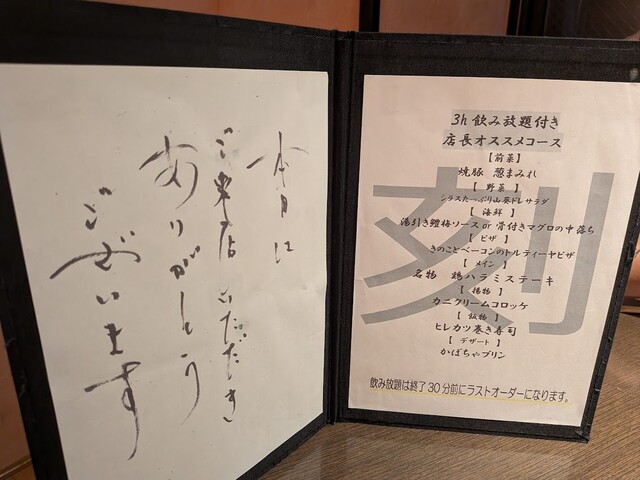 本日は
ご来店いただき
ありがとう
ございます
3h飲み放題付き
店長オススメコース
【前菜】
焼豚 葱まみれ
【野菜】
シラスたっぷり山葵ドレサラダ
【海鮮】
湯引き鱧梅ソース or 骨付きマグロの中落ち
【ピザ】
きのことベーコンのトルティーヤピザ
【メイン】
名物 鶏ハラミステーキ
【揚物】
カニクリームコロッケ
【飯物】
ヒレカツ巻き寿司
【デザート】
かぼちゃプリン
刻
飲み放題は終了30分前にラストオーダーになります。